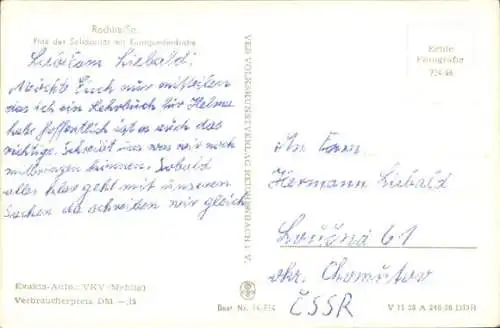 Rochlitz/Sa.
Platz der Solidarität mit Kunigundenkirche
Liebald!
Möchte Euch nur mitteilen
das ich ein Lehrbuch für Helma
habe hoffentlich ist es auch das
richtige. Schreibt uns was wir noch
mitbringen können. Sobald
alles klar geht mit unseren
Sachen da schreiben wir gleich
Exakta-Auto., VKV (Mehlig)
Verbraucherpreis DM —,15
VEB VOLKSKUNSTVERLAG REICHENBACH I. V.
Best. Nr.
Echte
Fotografie
An Fam.
Hermann Liebald
Loučná 61
okr. Chomutov
ČSSR
V 11 28 A DDR